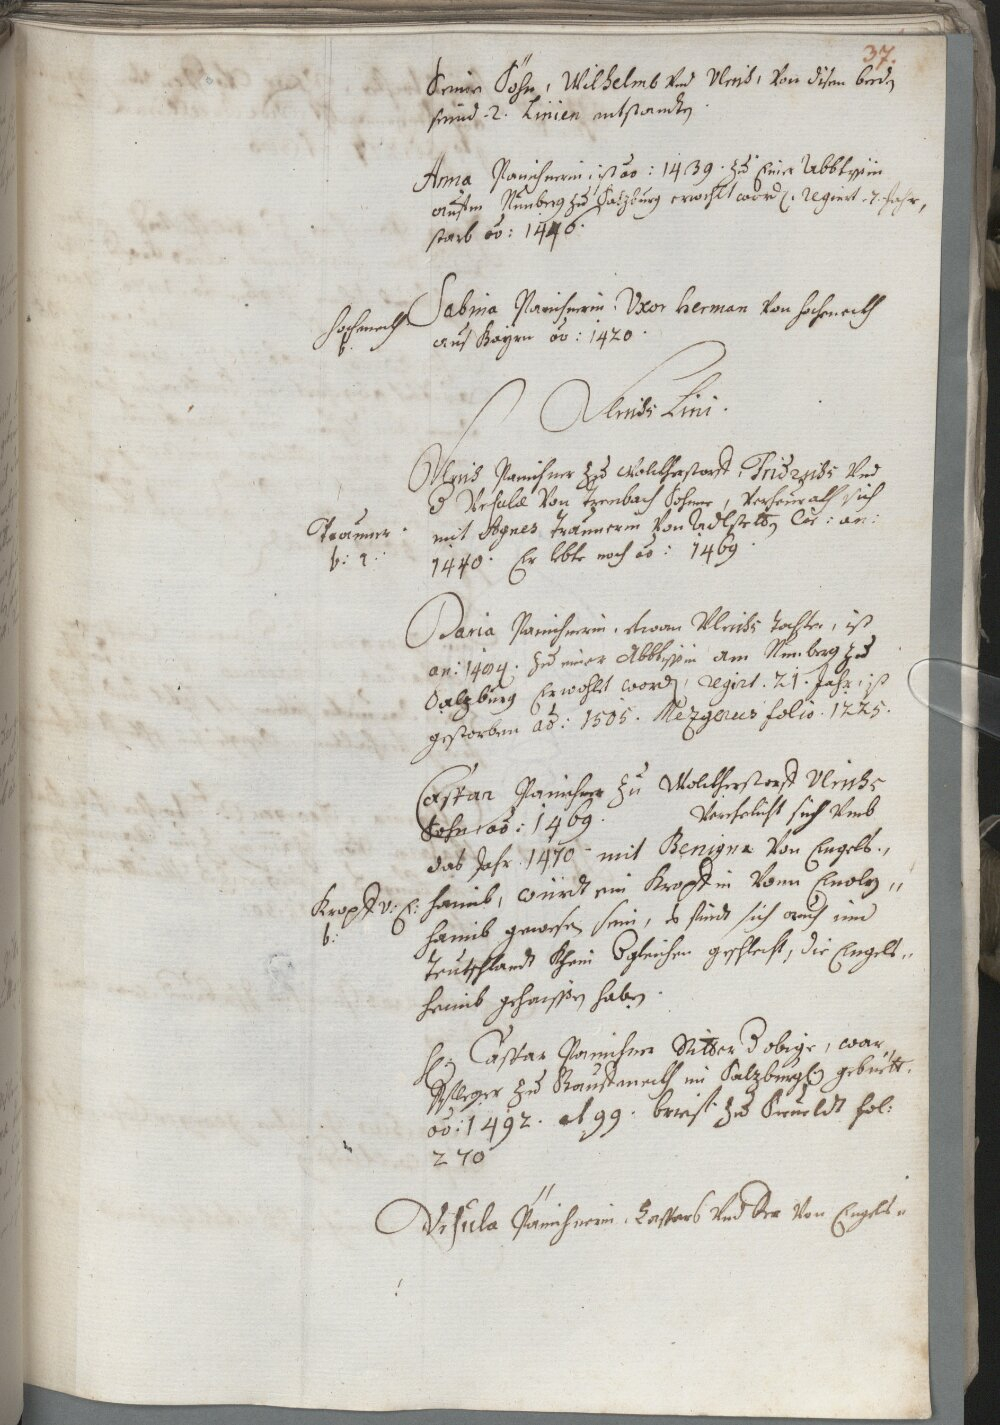 37.
Seine Söhn, Wilhelmb und Ulrich, Von disen beeden
seind 2. Linien entstanden.
Anna Panichnerin, ist ao: 1439. zu einer Abbtissin
auf dem Nunberg zu Salzburg erwöhlt worden, regiert 7. Jahr,
starb ao: 1446.
Hocheneckh
b.
Sabina Panichnerin, Uxor Herman Von Hocheneckh
aus Bayrn ao: 1420.
Ulrichs Lini.
Ulrich Panichner zu Wolckherstorff, Fridrichs und
der Ursulæ Von Trenbach Sohne, Verheurath sich
mit Agnes Traunerin Von Adlstetten, an:
1440. Er lebte noch ao: 1469.
Trauner.
b: 2.
Daria Panichnerin, etwan Ulrichs Tochter, ist
an: 1484. zu einer Abbtissin am Nunberg zu
Salzburg Erwöhlt worden, regirt. 21. Jahr, ist
gestorben ao: 1505. Mezgerus folio. 1225.
Caspar Panichner zu Wolckherstorff Ulrichs
Sohn ao: 1469. Verehelicht sich Umb
das Jahr 1470 mit Benigna Von Engels,,
Kropff v: E:
b:
haimb, würdt ein Kropffin Vonn Englz,,
haimb gewesen sein, es findt sich auch inn
Teutschlandt Khein dergleichen geschlecht, die Engels,,
heimb gehaissen haben.
H: Caspar Panichner Ritter der obige, war
Pfleger zu Rauscheneckh im Salzburgischen gebiett.
ao: 1492. et 99. brieff zu fol:
270
Ursula Panichnerin, Caspars und der Von Engels,,